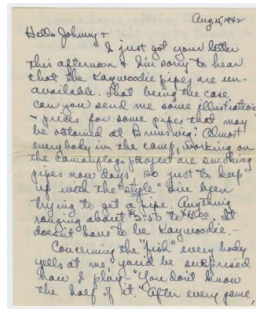 Aug 15, 1942
Hello Johnny +
I just got your letter
this afternoon & I'm sorry to hear
that the Kaywoodie pipes are un-
available. That being the case
can you send me some illustrations
+ prices for some pipes that may
be obtained at Brunswig? Almost
everybody in the camp, working on
the camouflage project are smoking
pipes now days so just to keep
up with the "style" I've been
trying to get a pipe. Anything
ranging about to $4.00. It
doesn't have to be Kaywoodie. -
Concerning the "fish" every body
yells at me, you'd be surprised
how I play. "You don't know
the half of it." After every game,